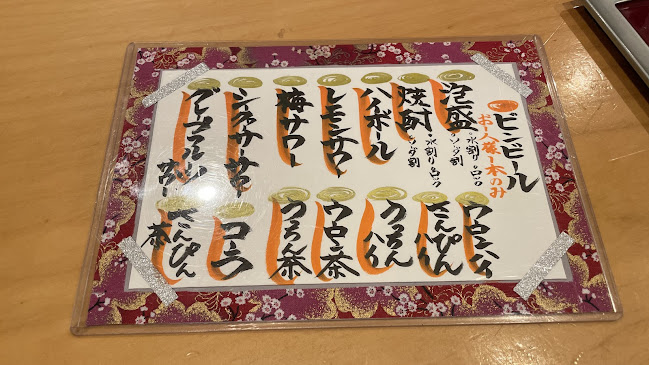 ビンビール
お一人様一本のみ
泡盛
・水割り・ロック
・ソーダ割
焼酎
・水割り・ロック
・ソーダ割
ハイボール
レモンサワー
梅サワー
シークヮーサーサワー
グレープフルーツ
サワー
ウーロンハイ
さんぴん
ハイ
うっちん
ハイ
ウーロン茶
うっちん茶
コーラ
さんぴん
茶